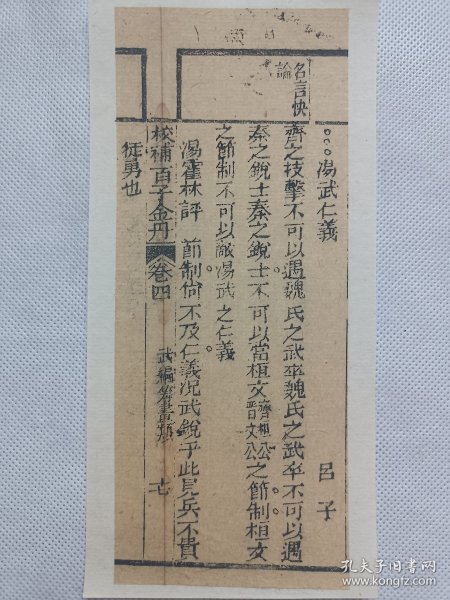 名言快論
湯武仁義　呂子
齊之技擊不可以遇魏氏之武卒魏氏之武卒不可以遇
秦之銳士秦之銳士不可以當桓文齊桓公晉文公之節制桓文
之節制不可以敵湯武之仁義
湯霍林評　節制尚不及仁義況武銳乎此見兵不貴
校補百子金丹　卷四　武編　七
徒勇也
孔夫子旧书网
www.kongfz.com